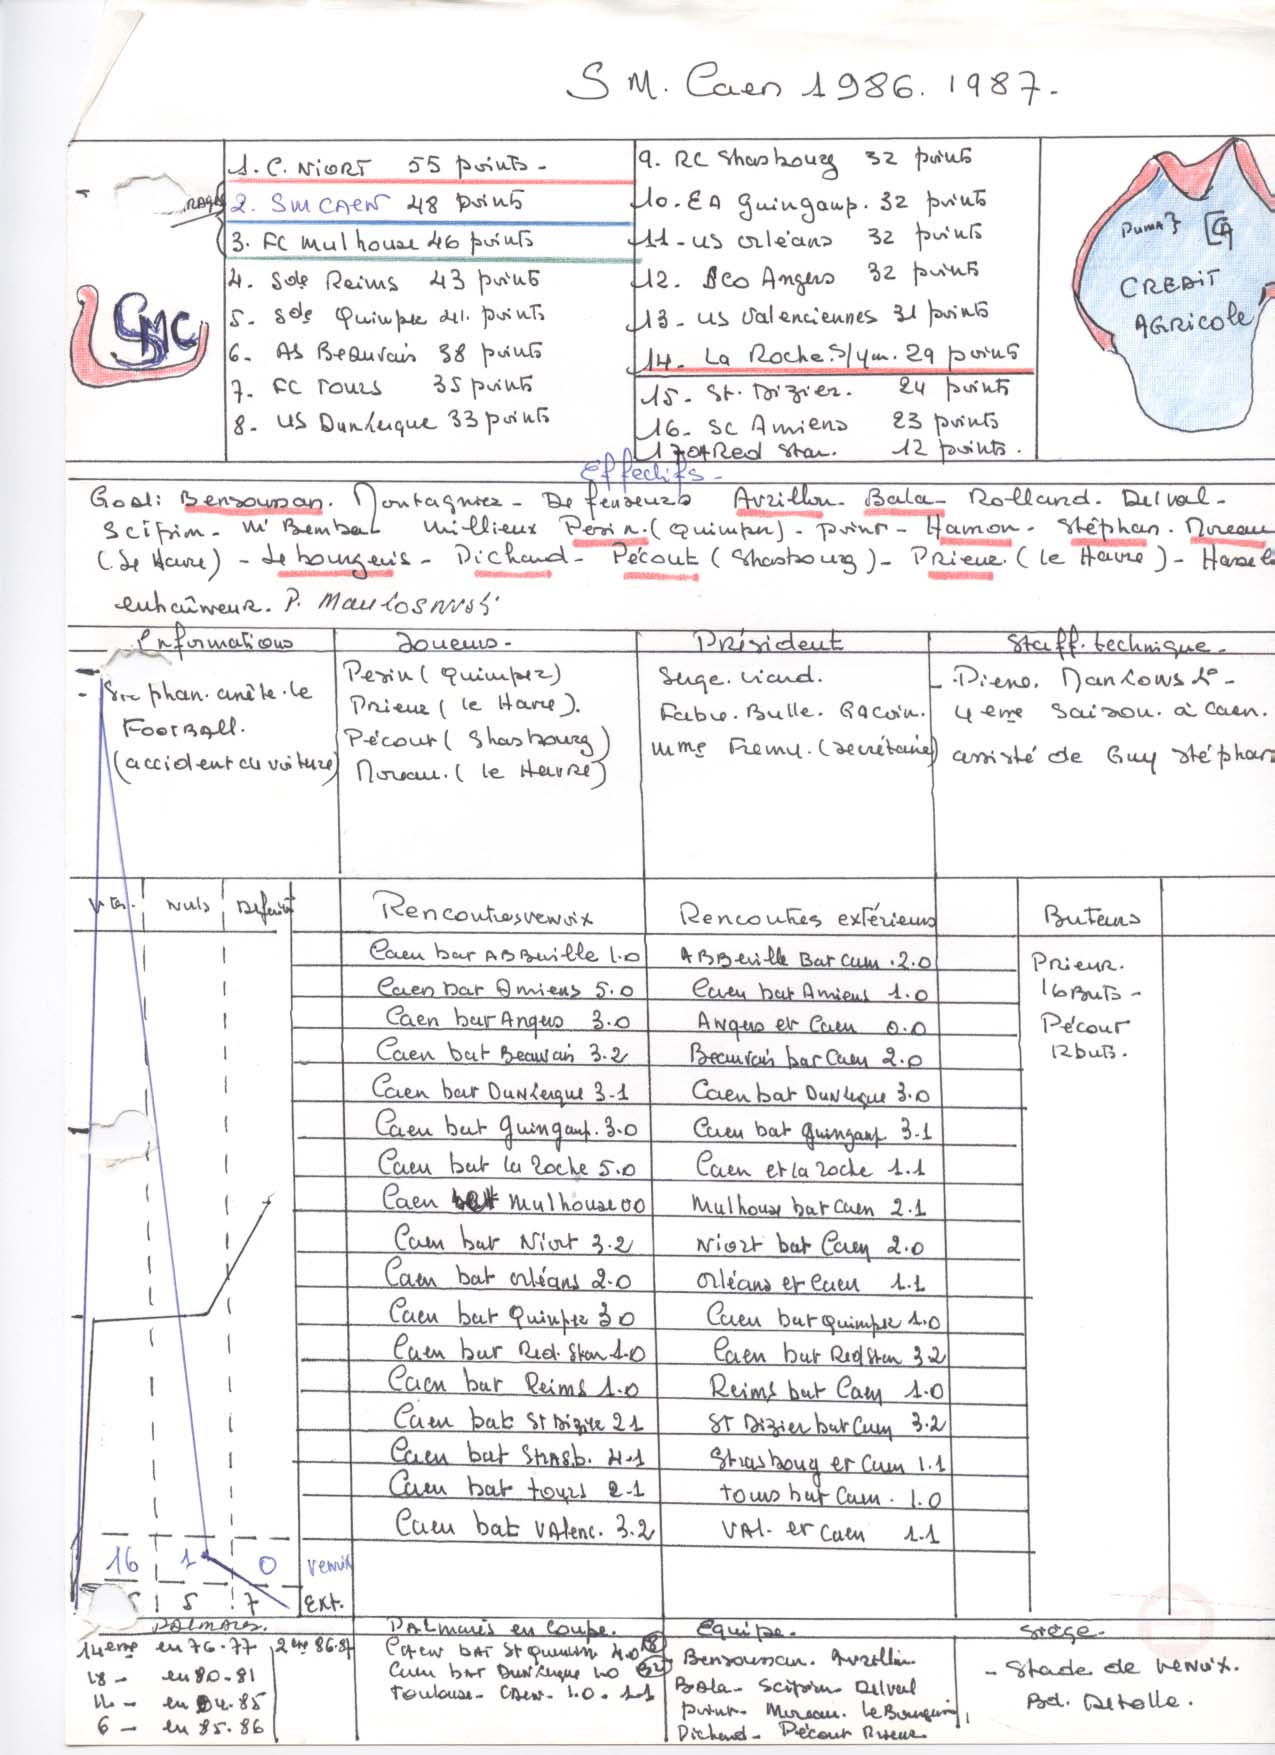 S M. Caen 1986. 1987.
1. C. NiORT 55 points -
2. SM CAEN 48 points
3. FC Mulhouse 46 points
4. Sde Reims 43 points
5. Sde Quimper 41. points
6. AS Beauvais 38 points
7. FC Tours 35 points
8. US Dunkerque 33 points
9. RC Strasbourg 32 points
10. EA Guingamp. 32 points
11 - US Orléans 32 points
12. Sco Angers 32 points
13 - US Valenciennes 31 points
14. La Roche S/ym. 29 points
15. St. Dizier. 24 points
16. SC Amiens 23 points
17 Red Star. 12 points.
SMC
PUMA
CREDIT
AGRicole
Effectifs -
Goal: Bensoussan. Montagnier - Defenseurs Avrillon - Bala - Rolland. Delval -
Scifirn - M'Bemba Millieux Pesin. (Quimper) - point - Hamon - Stéphan. Moreau
(Le Havre) - Le bourgeois - Dichard - Pécout (Strasbourg) - Prieur. (le Havre) -
entraîneur. P.
Informations Joueurs - Président Staff. technique -
- Stephan. arrête. le
Football.
(accident de voiture)
Pesin (Quimper)
Prieur (le Havre).
Pécout (Strasbourg)
Moreau. (le Havre)
Serge. Viard.
Fabre. Bulle. Gacoin.
Mme Fremy. (secrétaire)
- Pierre.
4eme Saison. à Caen.
assisté de Guy Stéphan
Vic. Nuls Defaites Rencontres venoix Rencontres extérieures Buteurs
Caen bat ABBeville 1.0 ABBeville Bat Caen . 2.0
Caen bat Amiens 5.0 Caen bat Amiens 1.0
Caen bat Angers 3.0 Angers et Caen 0.0
Caen bat Beauvais 3.2 Beauvais bat Caen 2.0
Caen bat Dunkerque 3-1 Caen bat Dunkerque 3.0
Caen bat Guingamp. 3.0 Caen bat Guingamp 3.1
Caen bat la Roche 5.0 Caen et la Roche 1.1
Caen Mulhouse 00 Mulhouse bat Caen 2.1
Caen bat Niort 3.2 Niort bat Caen 2.0
Caen bat Orléans 2.0 Orléans et Caen 1.1
Caen bat Quimper 3 0 Caen bat Quimper 1.0
Caen bat Red. Star 1.0 Caen bat Red Star 3.2
Caen bat Reims 1.0 Reims bat Caen 1.0
Caen bat St Dizier 2 1 St Dizier bat Caen 3.2
Caen bat Strasb. 4-1 Strasbourg et Caen 1.1
Caen bat Tours 2-1 Tours bat Caen . 1.0
Caen bat VAlenc. 3.2 VAl. et Caen 1.1
Prieur.
16 Buts -
Pécout
12 buts.
16 1 0 Venoix
5 7 Ext.
PALMARES.
14eme en 76-77 2eme 86.87
18 - en 80-81
11 - en 84.85
6 - en 85.86
PALMARès en Coupe.
Caen BAT St Quentin 4.0
Caen bat Dunkerque 1.0
Toulouse - Caen - 1.0 - 1-1
Equipe.
Bensoussan. Avrillon
Bala - Scifirn Delval
point - Moreau. Le Bourgeois
Dichard - Pécout Prieur
Siège.
- Stade de Venoix.
Bd. Detolle.